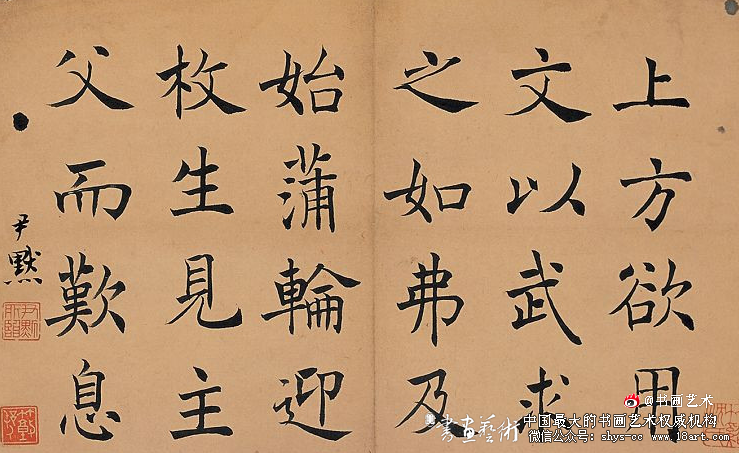 上方欲用
文以武求
之如弗及
始蒲輪迎
枚生見主
父而歎息
尹默
@书画艺术
書畫藝術
中国最大的书画艺术权威机构
微信公众号：shys-cc www.18art.com